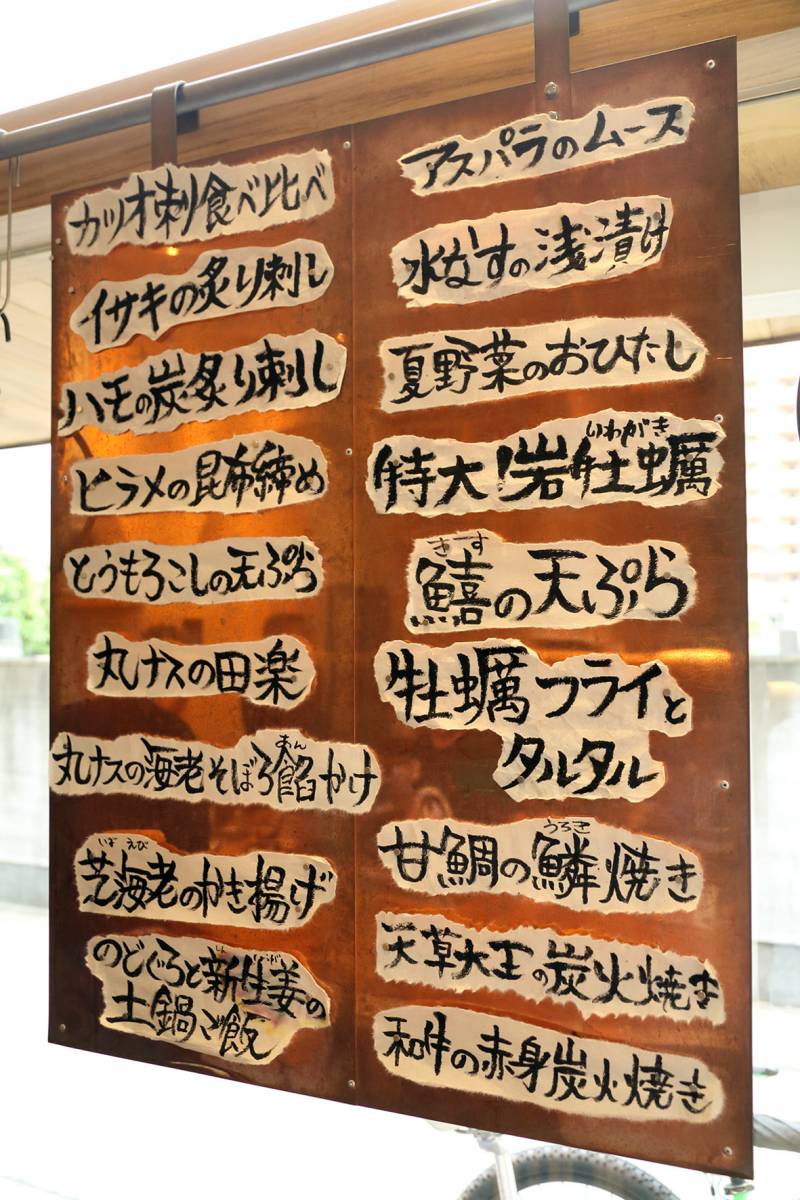 カツオ刺食べ比べ
イサキの炙り刺し
ハモの炭炙り刺し
ヒラメの昆布締め
とうもろこしの天ぷら
丸ナスの田楽
あん
丸ナスの海老そぼろ餡かけ
しば えび
芝海老のかき揚げ
しん しょうが
のどぐろと新生姜の
土鍋ご飯
アスパラのムース
水なすの浅漬け
夏野菜のおひたし
いわがき
特大!岩牡蠣
きす
鱚の天ぷら
牡蠣フライと
タルタル
うろこ
甘鯛の鱗焼き
天草大王の炭火焼き
和牛の赤身炭火焼き